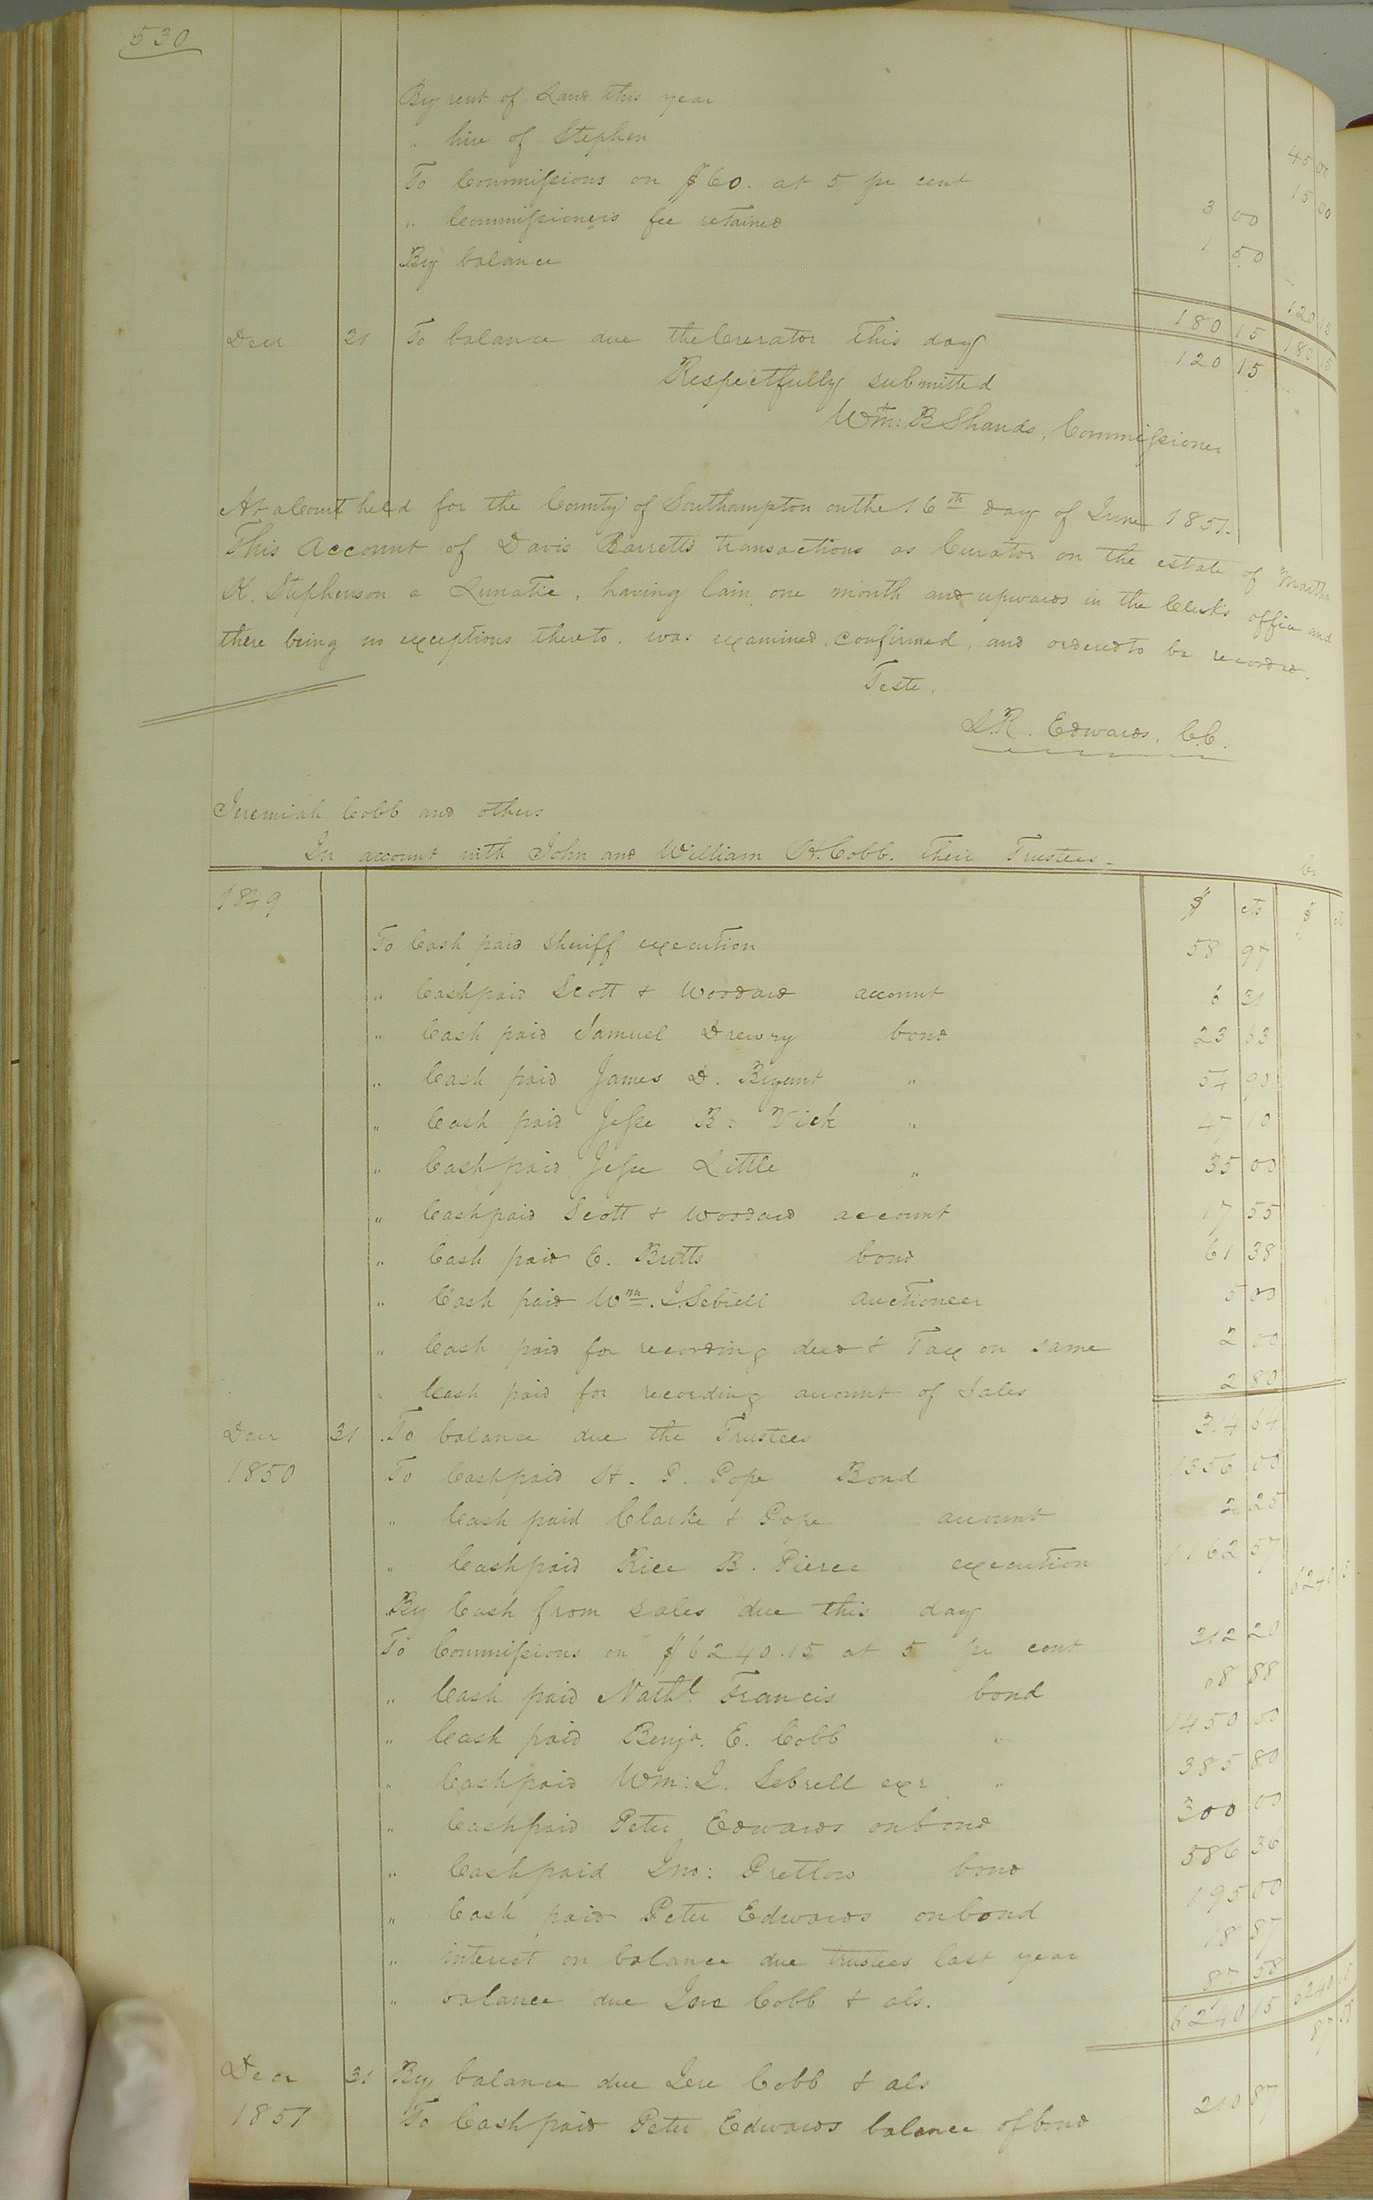 530
By rent of Land this year 45 00
" hire of Stephen 15 00
To Commissions on $60. at 5 pr cent 3 00
" Commissioners fee retained 1 50
By balance 120 15
180 15 180 15
Decr 31 To balance due the Curator this day 120 15
Respectfully submitted
Wm: B Shands, Commissioner
At a Court held for the County of Southampton on the 16th day of June 1851.
This Account of Davis Barretts transactions as Curator on the estate of Martha
K. Stephenson a Lunatic, having lain one month and upwards in the Clerk's office and
there being no exceptions thereto. was examined, confirmed, and ordered to be recorded.
Teste,
L.R. Edwards, C.C.
Jeremiah Cobb and others
In account with John and William H. Cobb. their Trustees-
Cr
1849 $ cts $
To Cash paid Sheriff execution 58 97
" Cash paid Scott & Woodard account 6 31
" Cash paid Samuel Drewry bond 23 63
" Cash paid James D. Bryant " 54 90
" Cash paid Jesse B: Vick " 47 10
" Cash paid Jesse Little " 35 00
" Cash paid Scott & Woodard account 17 55
" Cash paid E. Butts bond 61 38
" Cash paid Wm. J. Sebrell auctioneer 5 00
" Cash paid for recording deed & Tax on same 2 00
" Cash paid for recording account of Sales 2 80
Decr 31 To balance due the Trustees 314 64
1850 To Cash paid H. P. Pope Bond 1356 00
" Cash paid Clarke & Pope account 2 25
" Cash paid Rice B. Pierce execution 1162 57
By Cash from sales due this day 6240 15
To Commissions on $6240.15 at 5 pr cent 312 20
" Cash paid Nathl. Francis bond 68 88
" Cash paid Benja. E. Cobb " 1450 00
" Cash paid Wm: J. Sebrell exr " 385 80
" Cash paid Peter Edwards on bond 300 00
" Cash paid Jno: Pretlow bond 586 36
" Cash paid Peter Edwards on bond 195 00
" interest on balance due trustees last year 18 87
" balance due Jere Cobb & als. 87 58
6240 15 6240 15
Decr 31 By balance due Jere Cobb & als 87 58
1851 To Cash paid Peter Edwards balance of bond 210 87